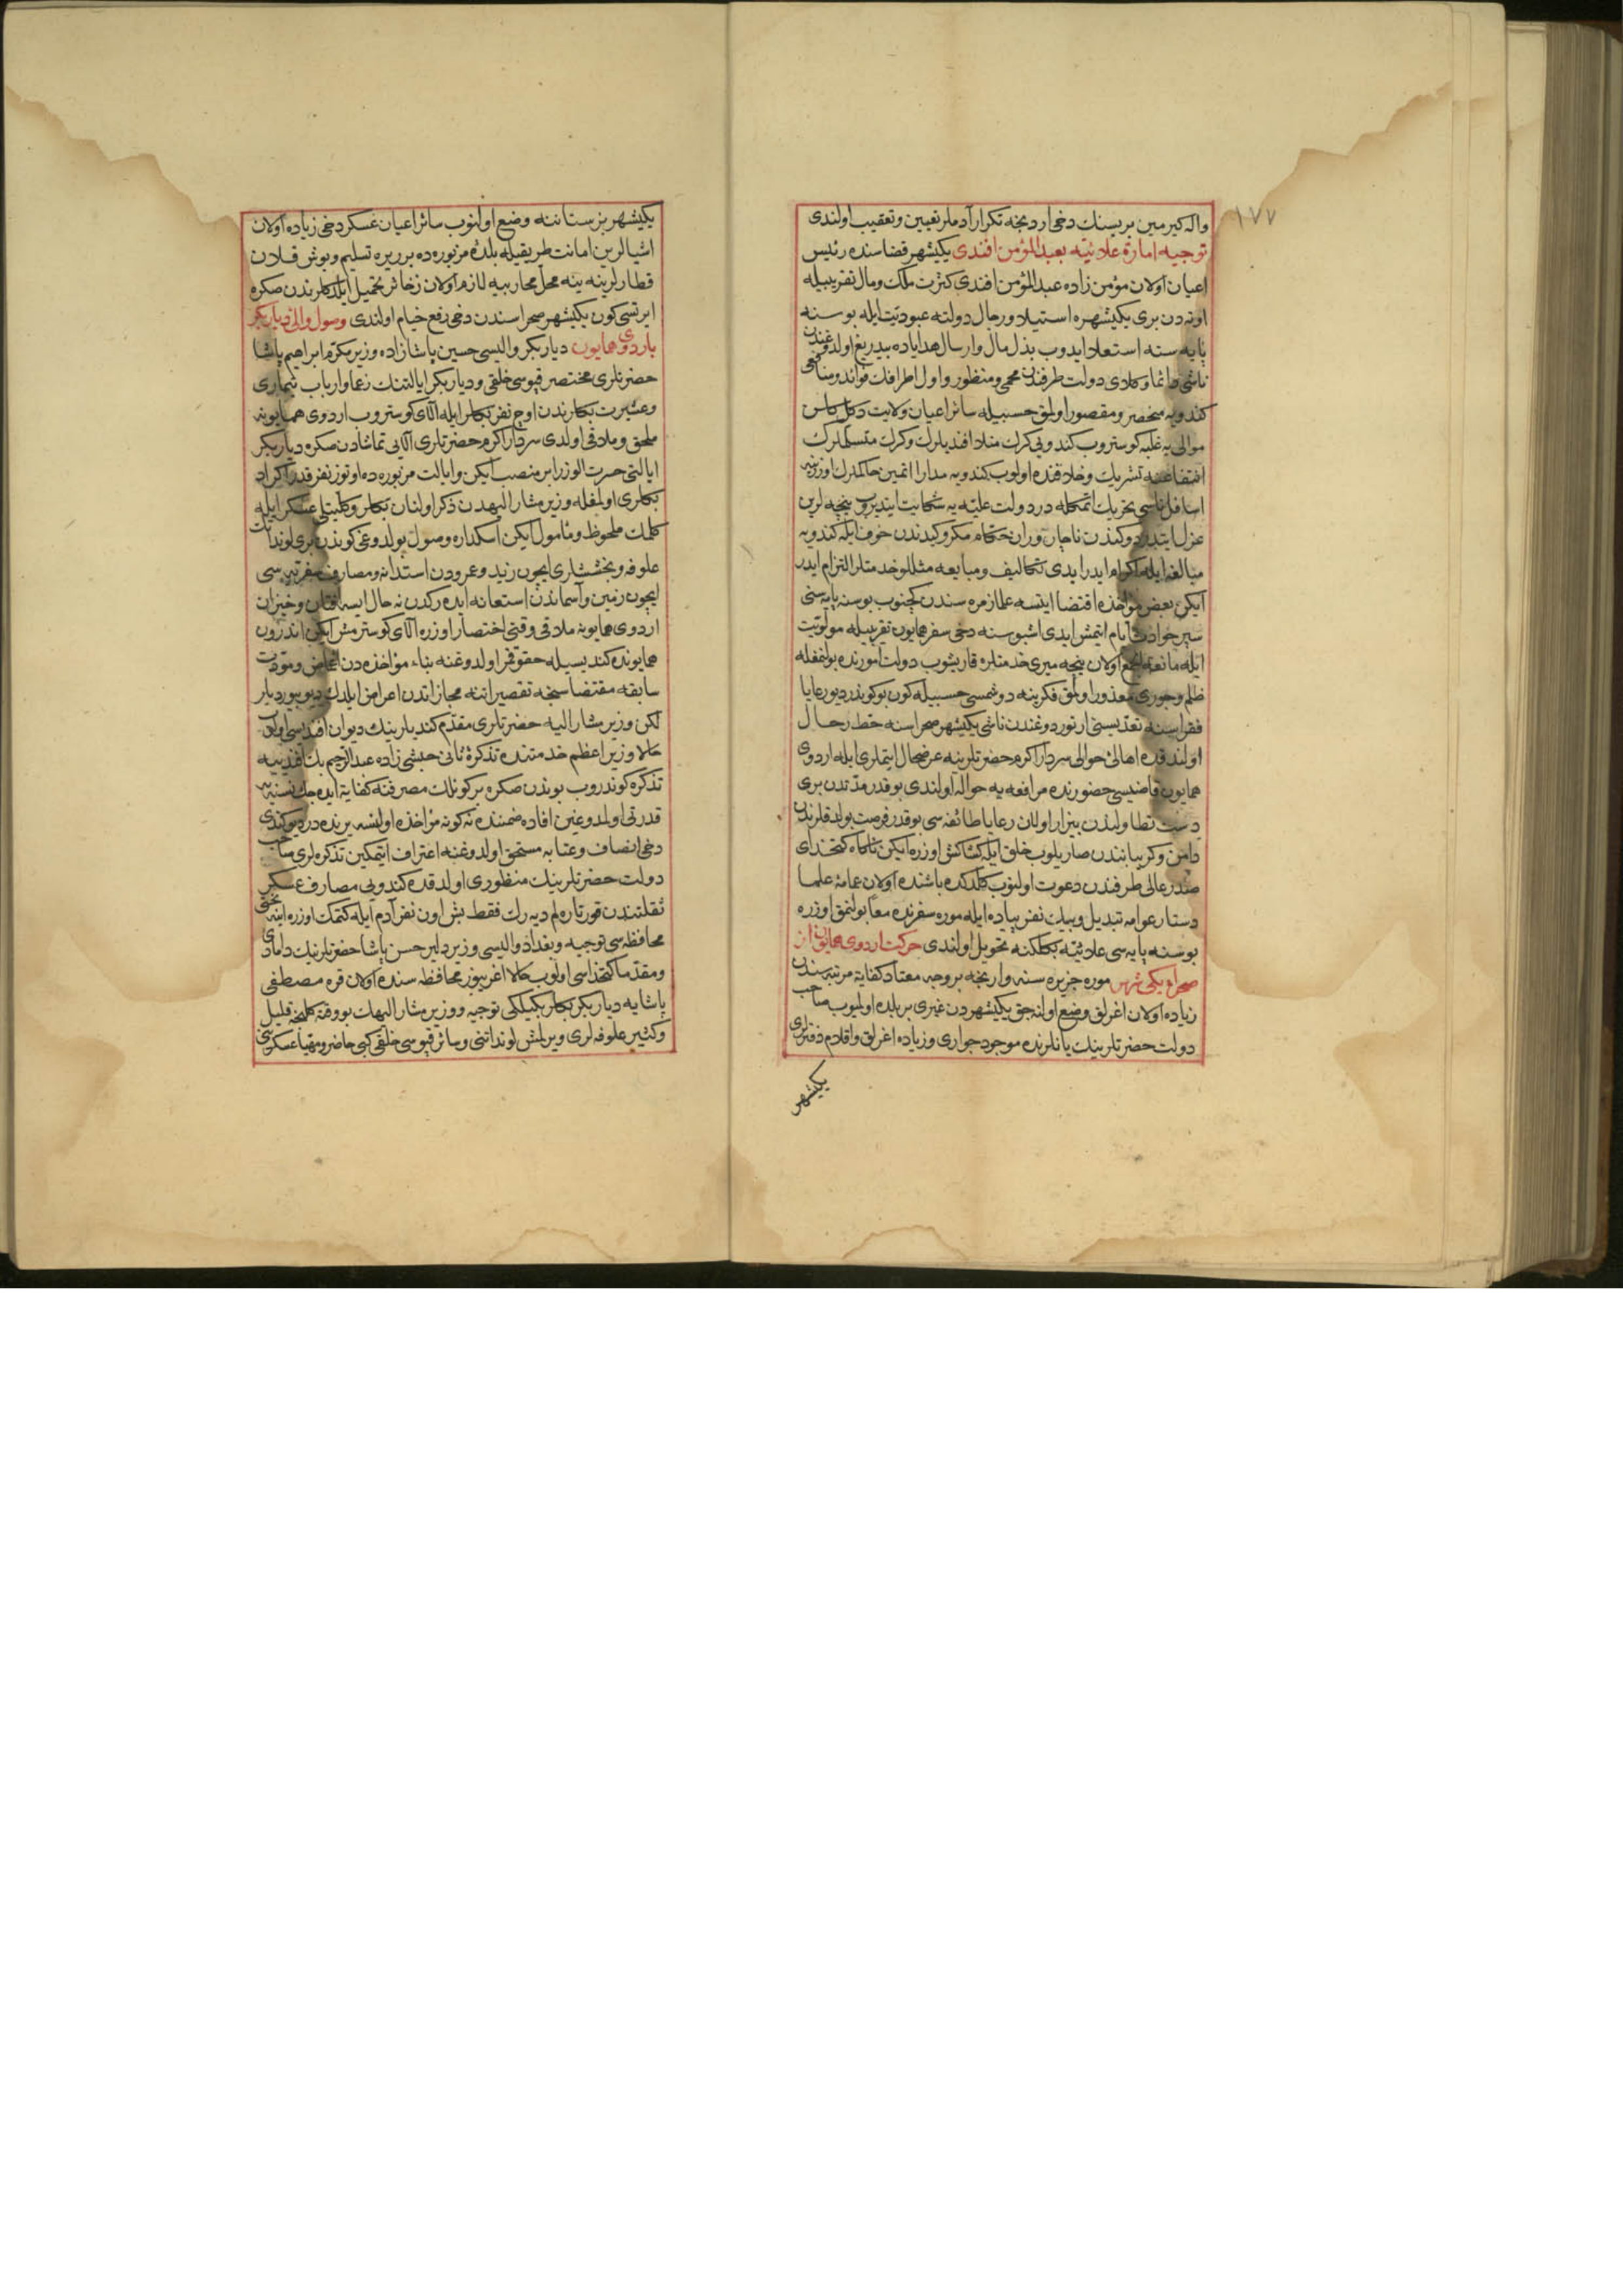 ١٧٧
واله كيرمين بريسنك دخی اردنجه تكرار آدملر تعيين وتعقيب اولندی
توجيه امارة علائيه بعبد المؤمن افندی يكيشهر قضاسنده رئيس
اعيان اولان مؤمن زاده عبد المؤمن افندی كثرت ملك ومال تقريبيله
اوته دن بری يكيشهره استيلا ورجال دولته عبوديت ايله بوسنه
پايه سنه استعلا ايدوب بذل مال وارسال هداياده بيدريغ اولدوغندن
ناشی دائما وكلای دولت طرفندن محمی ومنظور واول اطرافك فوائد ومنافعی
كندويه منحصر ومقصور اولمق حسبيله سائر اعيان ولايت دكل
موالی يه غلبه كوستروب كندويی كرك منلا افنديلرك وكرك متسلملرك
انتفاعنه تشريك وخلافنده اولوب كندويه مدارا اتمين حاكملرك اوزرينه
اسافل ناسی تحريك اتمكله در دولت عليه يه شكايت ايتديروب نيجه لرين
عزل ايتدردوكندن ناچار وران حكام مكر وكيدندن خوف ايله كندويه
مبالغه ايله اكرام ايدر ايدی تكاليف ومبايعه مثللو خدمتلر التزام ايدر
ايكن بعض مؤاخذه اقتضا ايتسه علما زمره سندن كچنوب بوسنه پايه سنی
سپر حوادث ايام ايتمش ايدی اشبو سنه دخی سفر همايون تقريبيله مولويت
ايله مانعة الجمع اولان نيجه ميری خدمتلره قاريشوب دولت امورنده بولنمغله
ظلم وجوری معذور اولمق فكرينه دوشمسی حسبيله كون بوكوندر ديو رعايا
فقراسنه تعديسنی ارتوردوغندن ناشی يكيشهر صحراسنه حط رحال
اولندقده اهالئ حوالی سردار اكرم حضرتلرينه عرضحال ايتملری ايله اردوی
همايون قاضيسی حضورنده مرافعه يه حواله اولندی بو قدر مدتدن بری
دست تطاولندن بيزار اولان رعايا طائفه سی بو قدر فرصت بولدقلرنده
دامن وكريبانندن صاريلوب خلق ايله كشاكش اوزره ايكن ناكاه كتخدای
صدر عالی طرفندن دعوت اولنوب كلدكده باشنده اولان عمامۀ علما
دستار عوامه تبديل وبيك نفر پياده ايله موره سفرنده معا بولنمق اوزره
بوسنه پايه سی علائيه بكلكنه تحويل اولندی حركت اردوی همايون از
صحرای يكی شهر موره جزيره سنه وارنجه بر وجه معتاد كفاية مرتبه سندن
زياده اولان اغرلق وضع اولنه جق يكيشهردن غيری بر بلده اولميوب صاحب
دولت حضرتلرينك يانلرنده موجود جواری وزياده اغرلق واقلام دفترلری
يكيشهر
يكيشهر بزستاننه وضع اولنوب سائر اعيان عسكر دخی زياده اولان
اشيالرين امانت طريقيله بلدۀ مزبوره ده برر يره تسليم وبوش قلان
قطارلرينه ينه محل محاربيه لازم اولان ذخائر تحميل ايلدكلرندن صكره
ايرتسی كون يكيشهر صحراسندن دخی رفع خيام اولندی وصول والئ ديار بكر
باردوی همايون ديار بكر واليسی حسين پاشا زاده وزير مكرم ابراهيم پاشا
حضرتلری مختصر قپوسی خلقی وديار بكر ايالتنك زعما وارباب تيماری
وعشيرت بكلرندن اوچ نفر بكلر ايله آلای كوستروب اردوی همايونه
ملحق وملاقی اولدی سردار اكرم حضرتلری آلايی تماشادن صكره ديار بكر
ايالتی حسرت الوزرا بر منصب ايكن وايالت مزبوره ده اوتوز نفر قدر اكراد
بكلری اولمغله وزير مشار اليهدن ذكر اولنان بكلر وكليتلی عسكر ايله
كلمك ملحوظ ومأمول ايكن اسكداره وصول بولدوغی كوندن بری لوندات
علوفه وبخششلری ايچون زيد وعمرودن استدانه ومصارف سفريه سی
ايچون زمين وآسماندن استعانه ايده ركدن نه حال ايسه افتان وخيزان
اردوی همايونه ملاقی وقتی اختصار اوزره آلای كوسترمش ايكن اندرون
همايونده كنديسيله حقوقمز اولدوغنه بناء مؤاخذه دن اغماض ومودت
سابقه مقتضاسنجه تقصيراتنه مجازاتدن اعراض ايلدك ديو بيورديلر
لكن وزير مشار اليه حضرتلری مقدم كنديلرينك ديوان افنديسی اولان
حالا وزير اعظم خدمتنده تذكرۀ ثانی حبشی زاده عبد الرحيم بك افندييه
تذكره كوندروب بوندن صكره بر كونلك مصرفنه كفاية ايده جك نسنه يه
قدرتی اولمدوغين افاده ضمننده نه كونه مؤاخذه اولنسه يرنده در ديو كندی
دخی انصاف وعتابه مستحق اولدوغنه اعتراف ايتمكين تذكره لری صاحب
دولت حضرتلرينك منظوری اولدقده كندويی مصارف عسكر
ثقلتندن قورتاره لم ديه رك فقط بش اون نفر آدم ايله كتمك اوزره اينه بختی
محافظه سی توجيه وبغداد واليسی وزير دلير حسن پاشا حضرتلرينك دامادی
ومقدما كتخداسی اولوب حالا اغريبوز محافظه سنده اولان قره مصطفی
پاشايه ديار بكر بكلربكيلكی توجيه ووزير مشار اليهك بو وقته كلنجه قليل
وكثير علوفه لری ويرلمش لونداتنی وسائر قپوسی خلقی كبی حاضر ومهيا عسكرسی